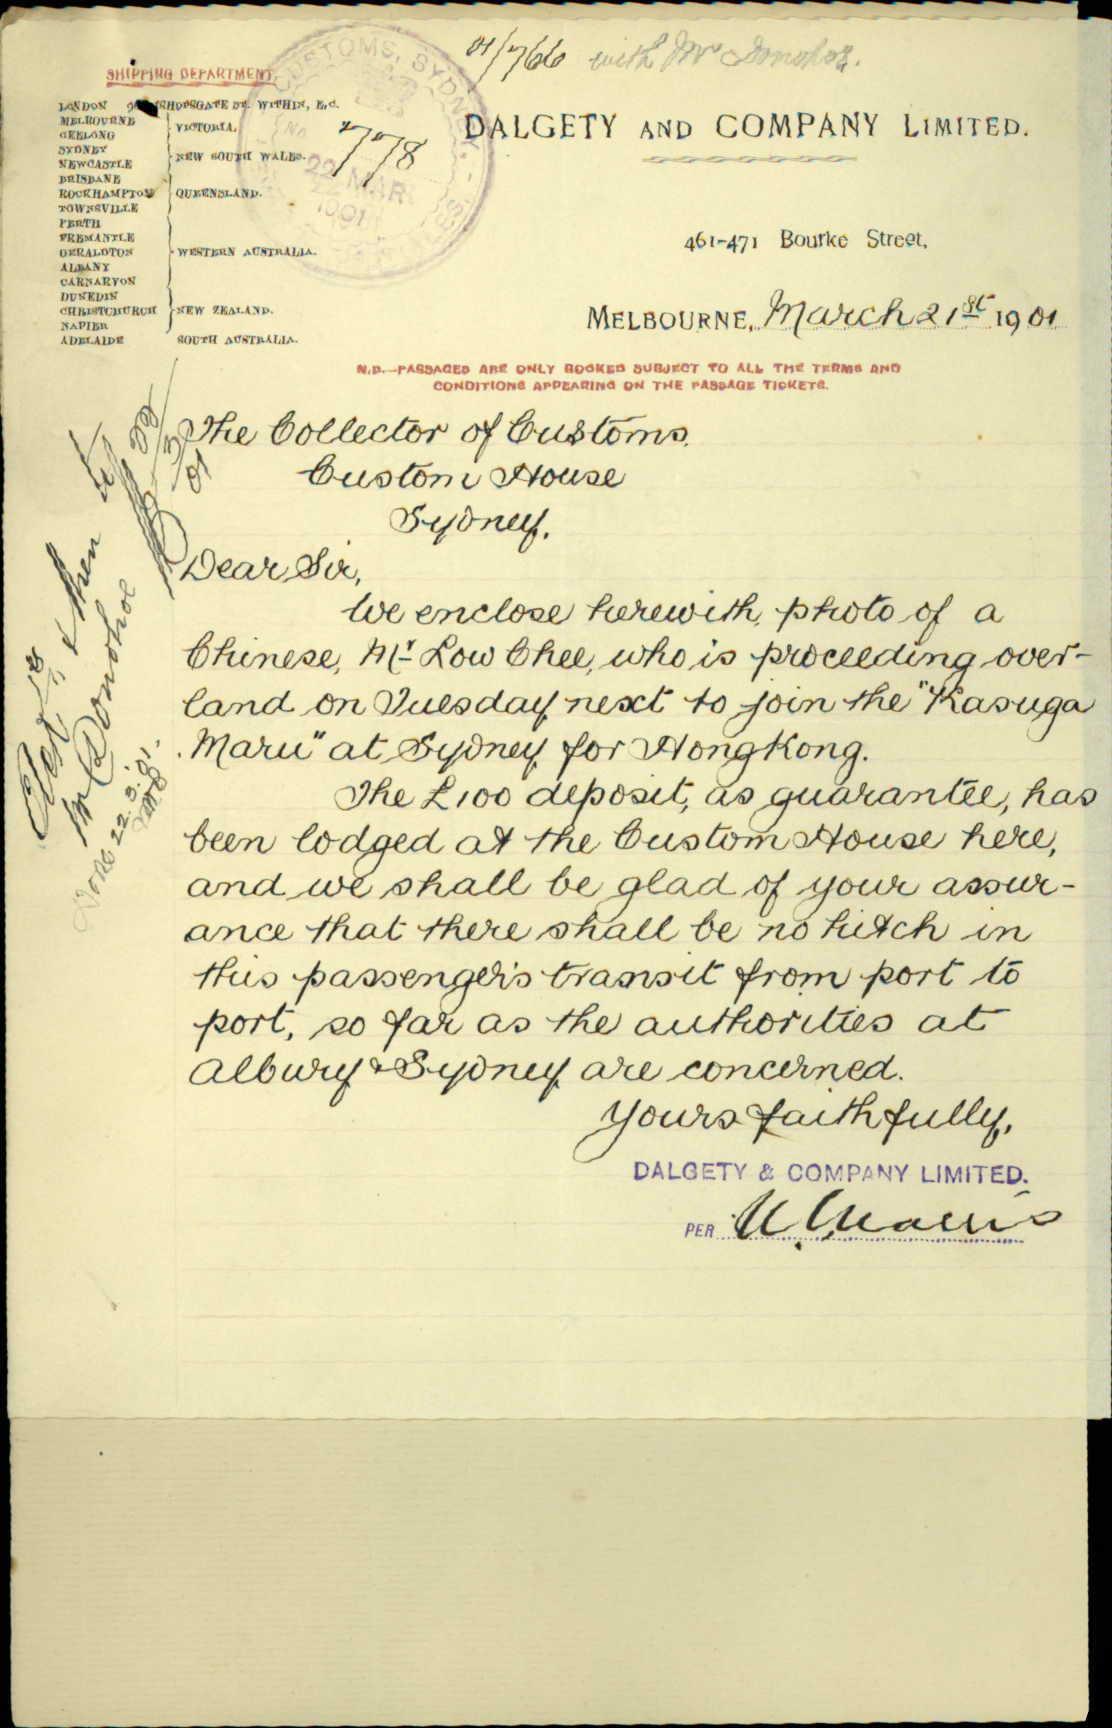 01/766 with Mr Donohoe.
SHIPPING DEPARTMENT.
LONDON BISHOPSGATE ST. WITHIN, E.C.
MELBOURNE
GEELONG
VICTORIA.
SYDNEY
NEWCASTLE
NEW SOUTH WALES.
BRISBANE
ROCKHAMPTON
TOWNSVILLE
QUEENSLAND.
PERTH
FREMANTLE
GERALDTON
ALBANY
CARNARVON
WESTERN AUSTRALIA.
DUNEDIN
CHRISTCHURCH
NAPIER
NEW ZEALAND.
ADELAIDE SOUTH AUSTRALIA.
CUSTOMS, SYDNEY
No
778
22 MAR
1901
DALGETY AND COMPANY LIMITED.
461-471 Bourke Street,
MELBOURNE, March 21st 1901
N.B.—PASSAGES ARE ONLY BOOKED SUBJECT TO ALL THE TERMS AND
CONDITIONS APPEARING ON THE PASSAGE TICKETS.
The Collector of Customs.
Custom House
Sydney.
Dear Sir,
We enclose herewith, photo of a
Chinese, Mr Low Chee, who is proceeding over-
land on Tuesday next to join the "Kasuga
Maru" at Sydney for HongKong.
The £100 deposit, as guarantee, has
been lodged at the Custom House here,
and we shall be glad of your assur-
ance that there shall be no hitch in
this passenger's transit from port to
port, so far as the authorities at
Albury & Sydney are concerned.
Yours faithfully,
DALGETY & COMPANY LIMITED.
PER
& then to
Mr Donohoe
22/3/01
Done 22.3.01.